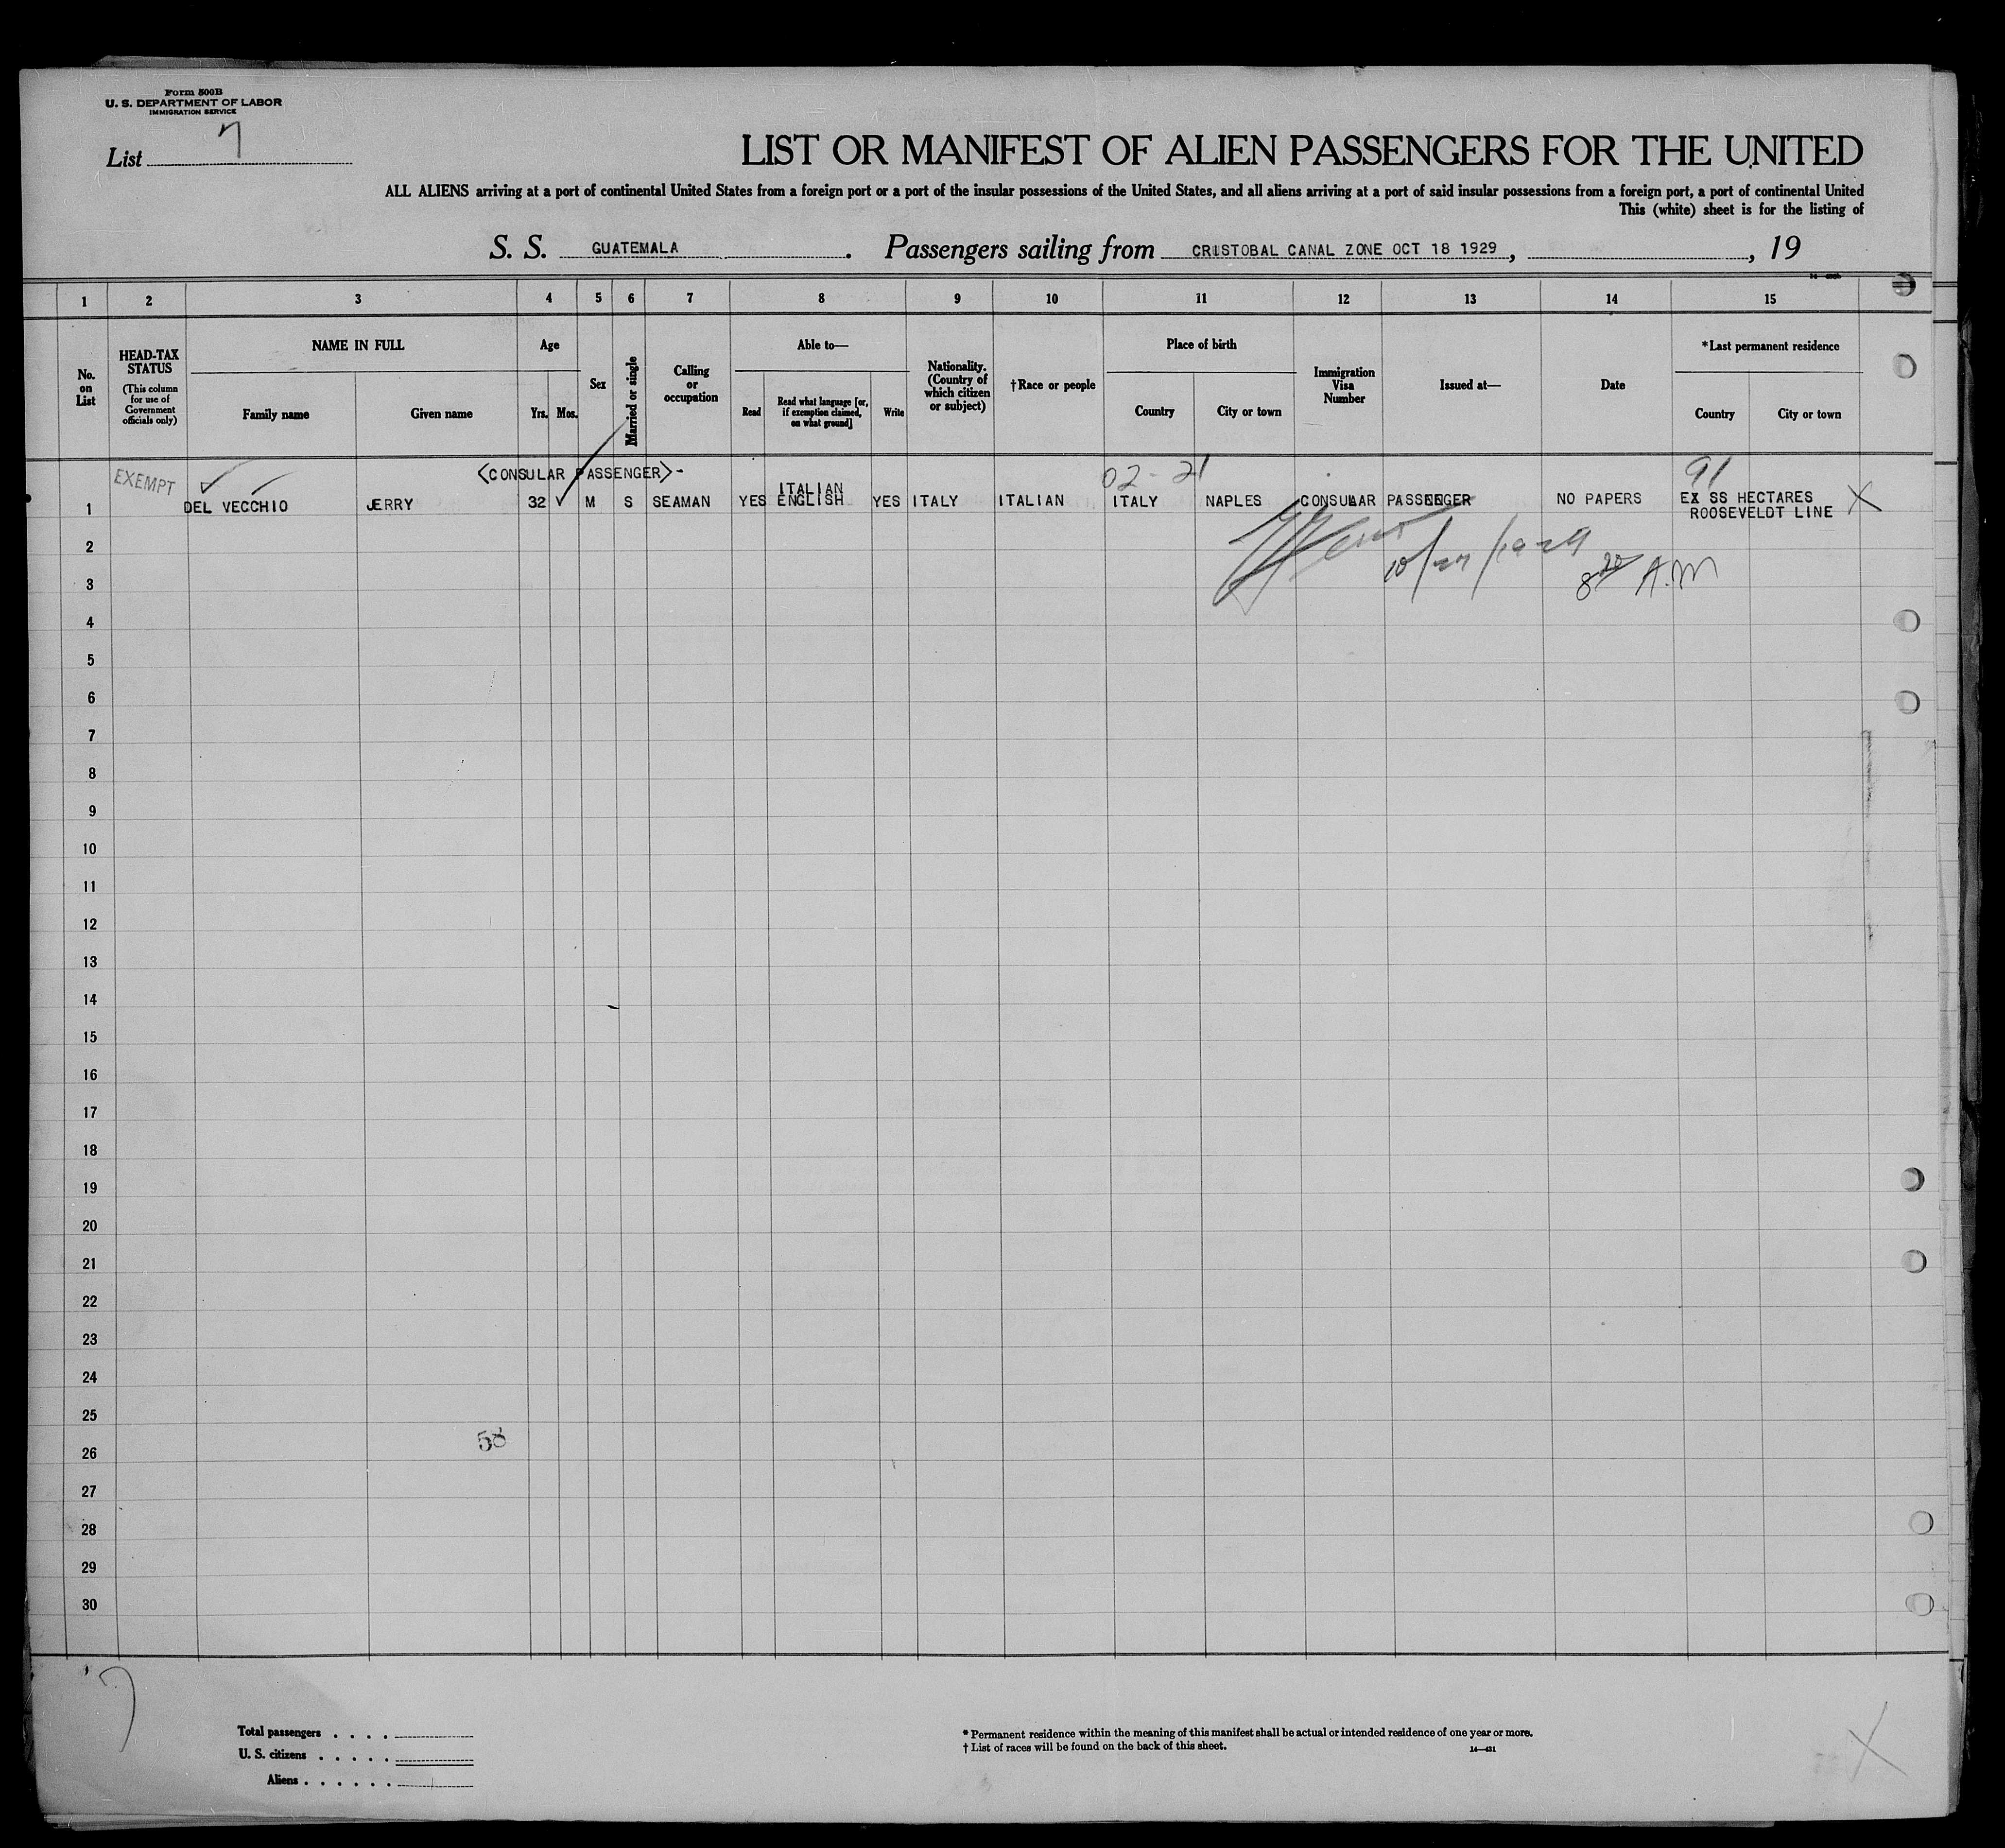 Form 500B
U. S. DEPARTMENT OF LABOR
IMMIGRATION SERVICE
List 7
LIST OR MANIFEST OF ALIEN PASSENGERS FOR THE UNITED
ALL ALIENS arriving at a port of continental United States from a foreign port or a port of the insular possessions of the United States, and all aliens arriving at a port of said insular possessions from a foreign port, a port of continental United
This (white) sheet is for the listing of
S. S. GUATEMALA. Passengers sailing from CRISTOBAL CANAL ZONE OCT 18 1929, , 19
1 2 3 4 5 6 7 8 9 10 11 12 13 14 15
No. on List
HEAD-TAX STATUS (This column for use of Government officials only)
NAME IN FULL
Family name Given name
Age
Yrs. Mos.
Sex
Married or single
Calling or occupation
Able to—
Read Read what language [or, if exemption claimed, on what ground] Write
Nationality. (Country of which citizen or subject)
†Race or people
Place of birth
Country City or town
Immigration Visa Number
Issued at—
Date
*Last permanent residence
Country City or town
EXEMPT <CONSULAR PASSENGER>- 02-21 91
ITALIAN
1 DEL VECCHIO JERRY 32 M S SEAMAN YES ENGLISH YES ITALY ITALIAN ITALY NAPLES CONSULAR PASSENGER NO PAPERS EX SS HECTARES X
ROOSEVELDT LINE
2
3 8 20 A.M
4
5
6
7
8
9
10
11
12
13
14
15
16
17
18
19
20
21
22
23
24
25
58
26
27
28
29
30
7
Total passengers
U. S. citizens
Aliens
* Permanent residence within the meaning of this manifest shall be actual or intended residence of one year or more.
† List of races will be found on the back of this sheet. 14—421
X